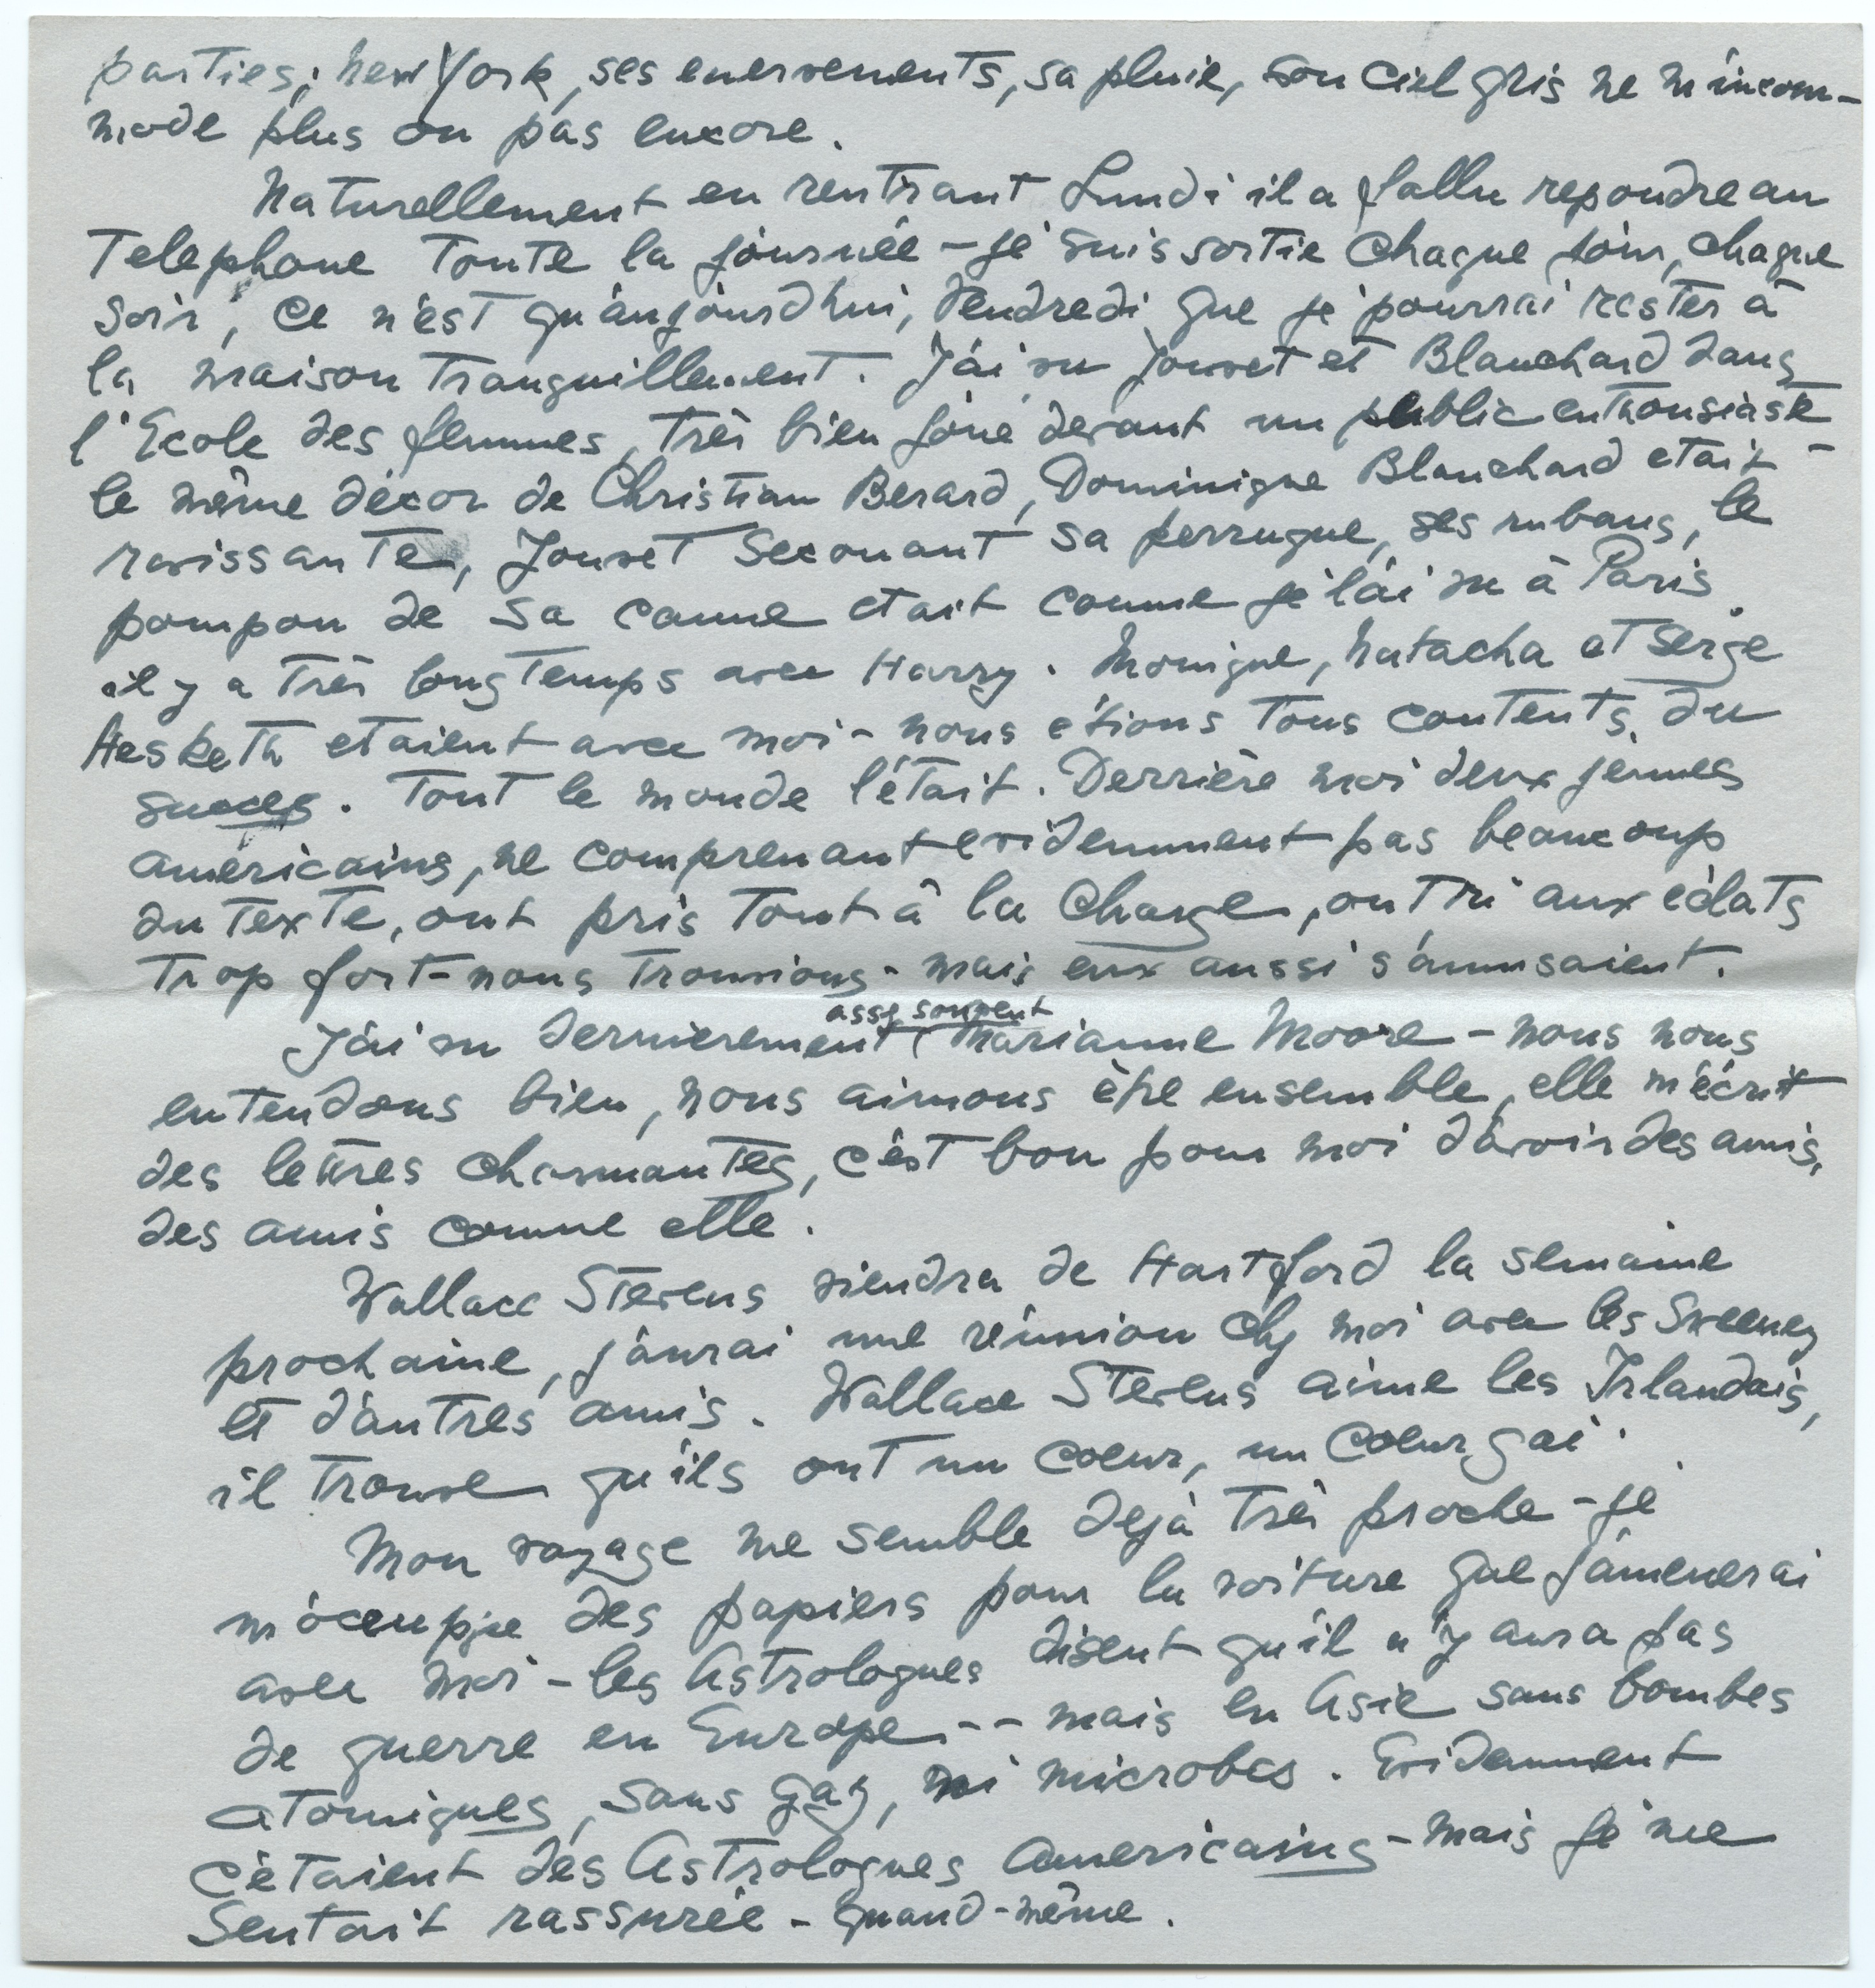 parties; New York, ses enervements, sa pluie, son ciel gris ne m'incom-
mode plus ou pas encore.
Naturellement en rentrant Lundi il a fallu repondre au
Telephone Toute la journée – je suis sortie chaque jour, chaque
soir, ce n'est qu'aujourd'hui, Vendredi que je pourrai rester à
la maison Tranquillement. J'ai vu Jouvet et Blanchard dans
l'Ecole des femmes, Très bien joué devant un public enthousiaste –
le même décor de Christian Berard, Dominique Blanchard etait
ravissante, Jouvet secouant sa perruque, ses rubans, le
pompon de sa canne etait comme je l'ai vu à Paris
il y a Très longTemps avec Harry. Monique, Natacha et Serge
Hesketh etaient avec moi – nous étions Tous contents du
succes. Tout le monde l'était. Derrière moi deux jeunes
américains, ne comprenant evidemment pas beaucoup
du Texte, ont pris Tout à la charge, ont ri aux éclats
Trop fort – nous Trouvions – mais eux aussi s'amusaient.
assez souvent
J'ai vu dernierement ( Marianne Moore – nous nous
entendons bien, nous aimons être ensemble, elle m'écrit
des lettres charmantes, c'est bon pour moi d'avoir des amis,
des amis comme elle.
Wallace Stevens viendra de Hartford la semaine
prochaine, j'aurai une réunion chez moi avec les Sweeney
et d'autres amis. Wallace Stevens aime les Irlandais,
il Trouve qu'ils ont un coeur, un coeur gai.
Mon voyage me semble dejà Très proche – je
m'occupe des papiers pour la voiture que j'amenerai
avec moi – les Astrologues disent qu'il n'y aura pas
de guerre en Europe -- mais en Asie sans bombes
atomiques, sans gaz, ni microbes. Evidemment
c'étaient des Astrologues Americains – mais je me
sentait rassurée – quand-même.